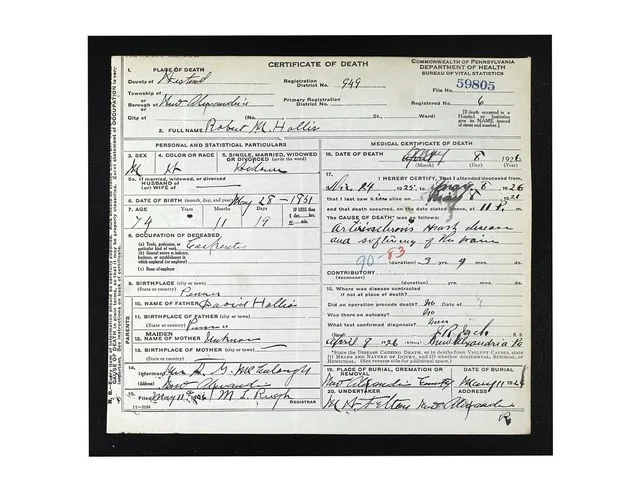 CERTIFICATE OF DEATH
COMMONWEALTH OF PENNSYLVANIA
DEPARTMENT OF HEALTH
BUREAU OF VITAL STATISTICS
1. PLACE OF DEATH
County of
Registration District No. 949
File No. 59805
Township of
or Borough of New Alexandria
Primary Registration District No.
Registered No. 6
City of (No. St., Ward)
[If death occurred in a Hospital or Institution give its NAME instead of street and number.]
2. FULL NAME Robert M. Hollis
PERSONAL AND STATISTICAL PARTICULARS
3. SEX M
4. COLOR OR RACE
5. SINGLE, MARRIED, WIDOWED OR DIVORCED (write the word)
5a. If married, widowed, or divorced
HUSBAND of
(or) WIFE of
6. DATE OF BIRTH (month, day, and year) May 28 - 1851
7. AGE Years Months Days
74 11 19
8. OCCUPATION OF DECEASED
(a) Trade, profession, or particular kind of work Carpenter
(b) General nature of industry, business, or establishment in which employed (or employer)
(c) Name of employer
9. BIRTHPLACE (city or town)
(State or country) Penna
10. NAME OF FATHER David Hollis
PARENTS
11. BIRTHPLACE OF FATHER
(State or country) Penna
12. MAIDEN NAME OF MOTHER Unknown
13. BIRTHPLACE OF MOTHER
(State or country)
14.
(Informant)
(Address) New Alexandria
15.
Filed May 11 M L Rugh REGISTRAR
MEDICAL CERTIFICATE OF DEATH
16. DATE OF DEATH May 8 1926
(Month) (Day) (Year)
17. I HEREBY CERTIFY, That I attended deceased from
24 1925, May 8, 1926
that I last saw him alive on May 8
and that death occurred, on the date stated above, at 11
The CAUSE OF DEATH was as follows:
Arteriosclerosis Heart disease
and softening of the brain
90-83
(duration) 3 yrs. 9 mos. ds.
CONTRIBUTORY
(Secondary)
(duration) yrs. mos. ds.
18. Where was disease contracted
if not at place of death?
Did an operation precede death? No Date of
Was there an autopsy? No
What test confirmed diagnosis?
April 9 26 (Address) New Alexandria Pa
*State the DISEASE CAUSING DEATH, or in deaths from VIOLENT CAUSES, state (1) MEANS AND NATURE OF INJURY, and (2) whether ACCIDENTAL, SUICIDAL, or HOMICIDAL. (See reverse side for additional space.)
19. PLACE OF BURIAL, CREMATION OR REMOVAL
DATE OF BURIAL
New Alexandria May 11
20. UNDERTAKER
ADDRESS
New Alexandria